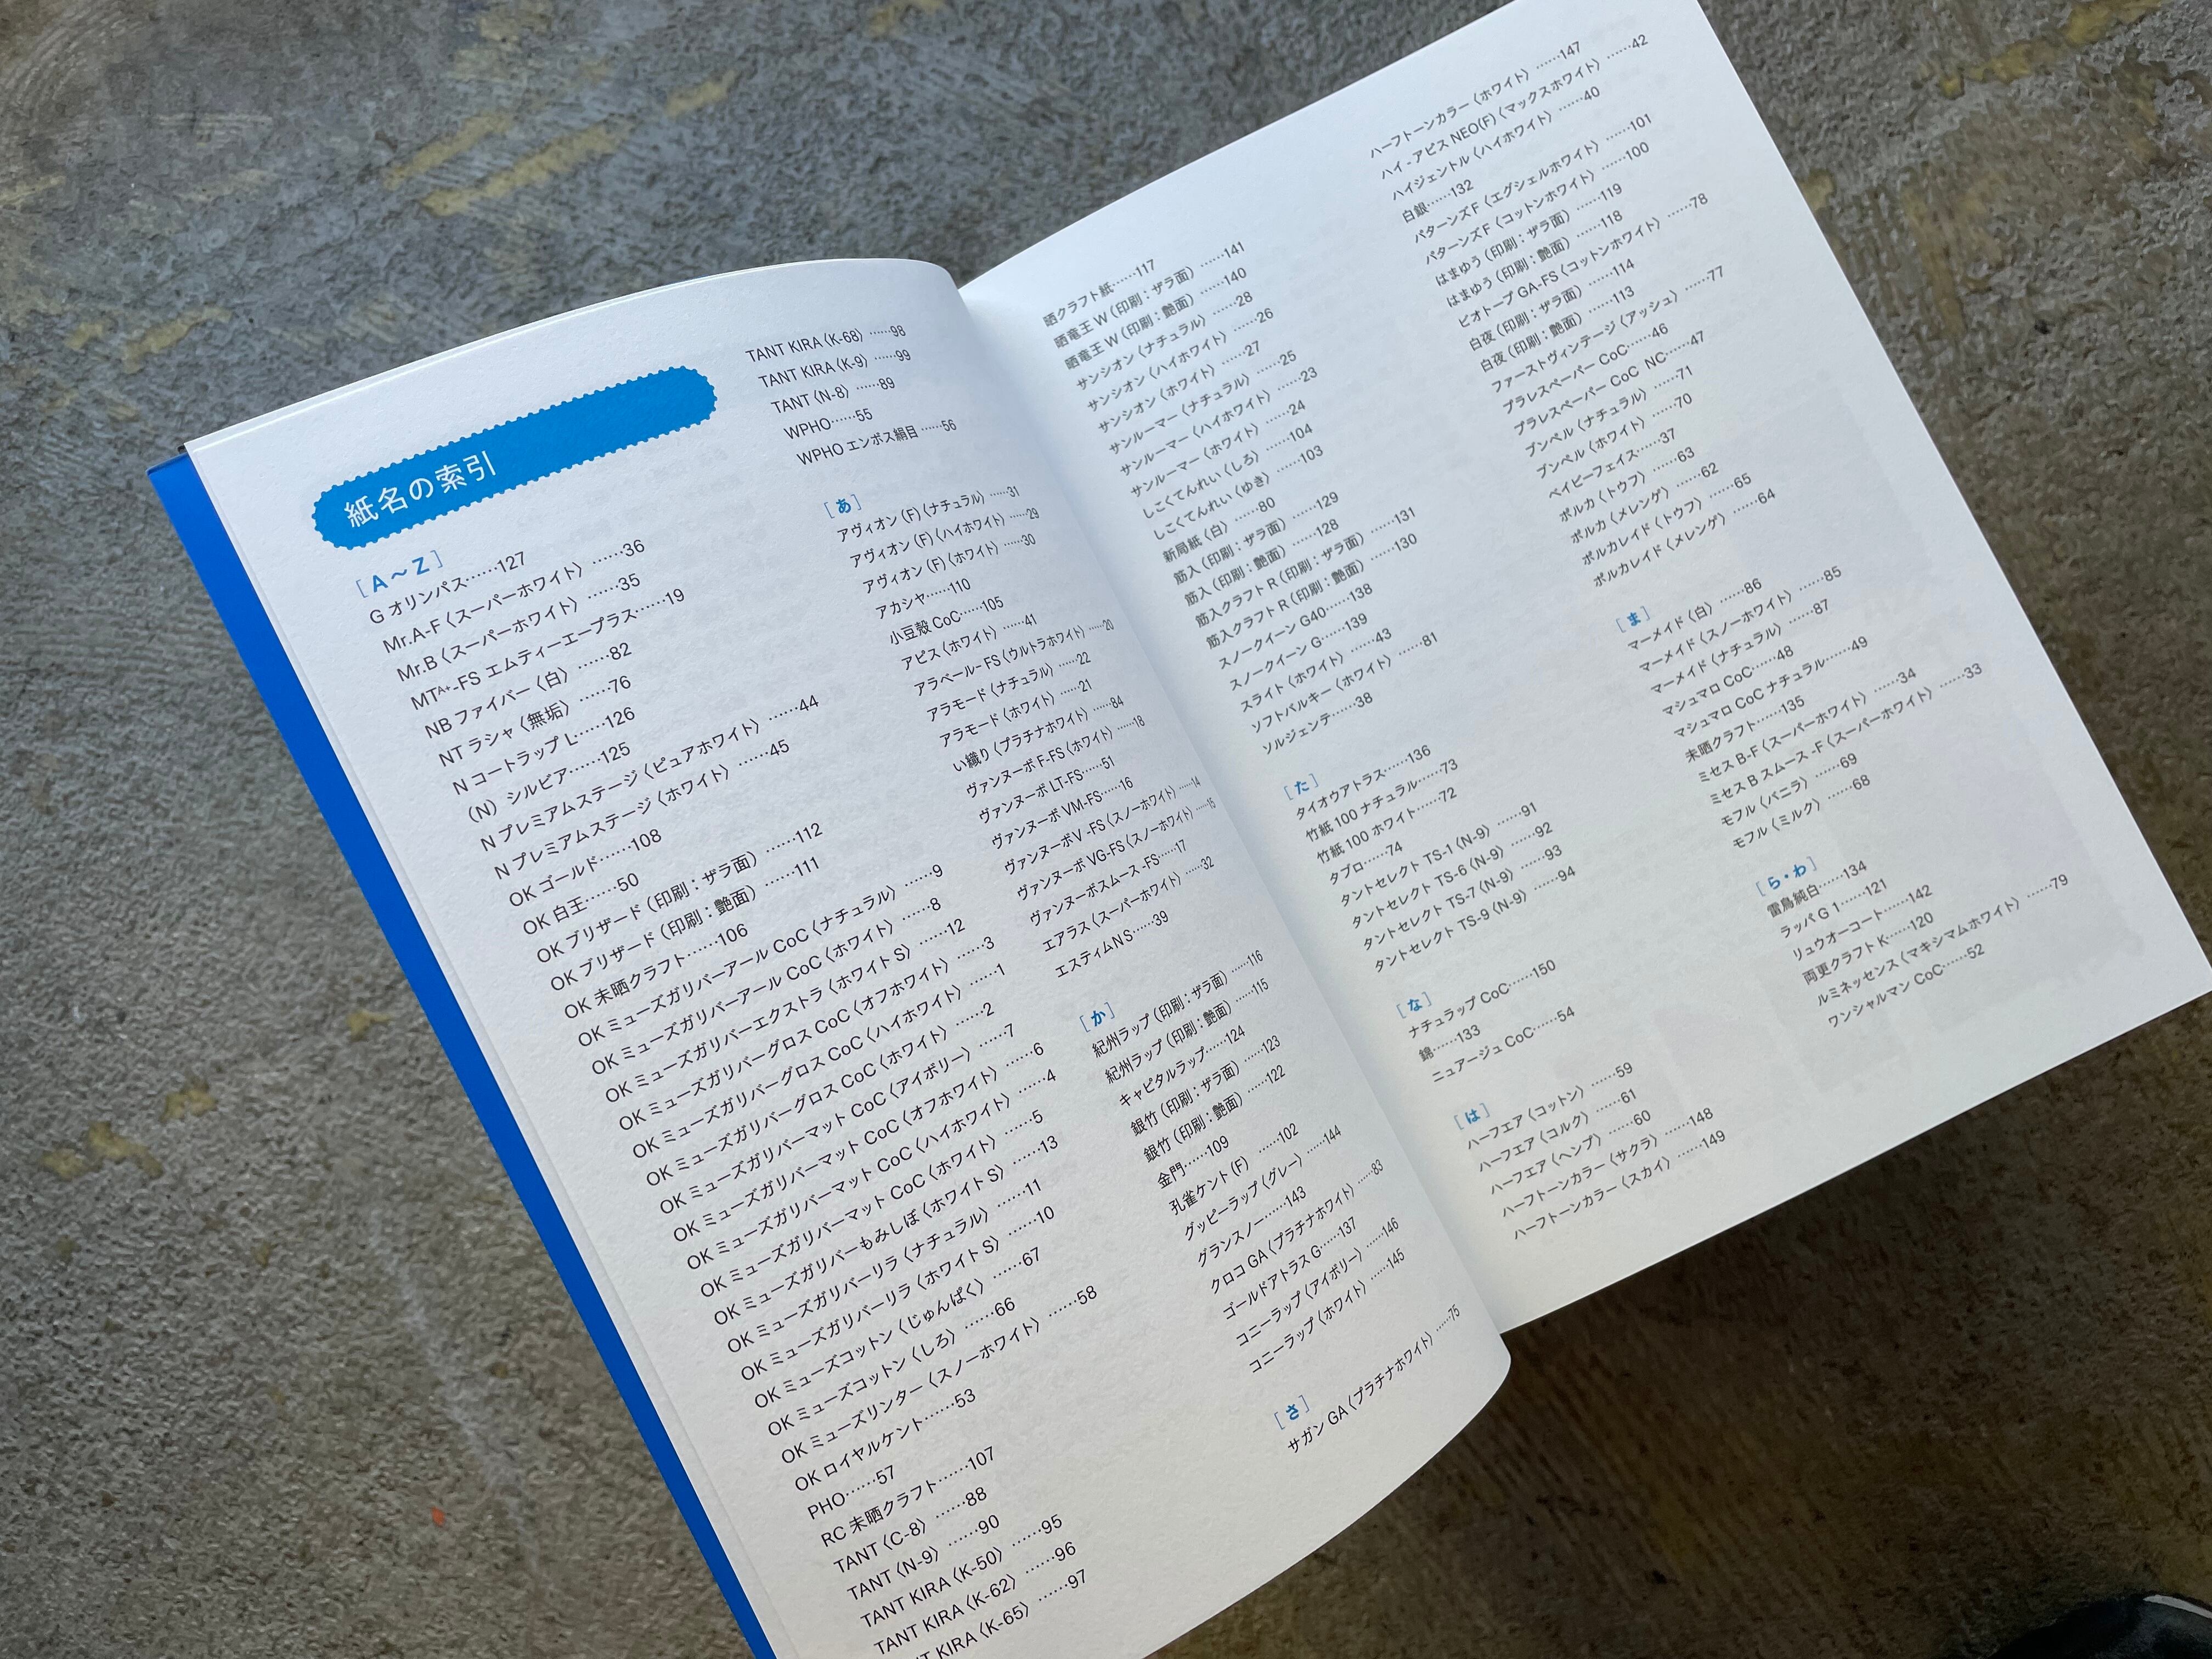 紙名の索引
［A～Z］
G オリンパス……127
Mr.A-F〈スーパーホワイト〉……36
Mr.B〈スーパーホワイト〉……35
MTA+-FS エムティーエープラス……19
NB ファイバー〈白〉……82
NT ラシャ〈無垢〉……76
N コートラップ L……126
（N）シルビア……125
N プレミアムステージ〈ピュアホワイト〉……44
N プレミアムステージ〈ホワイト〉……45
OK ゴールド……108
OK 白王……50
OK ブリザード（印刷：ザラ面）……112
OK ブリザード（印刷：艶面）……111
OK 未晒クラフト……106
OK ミューズガリバーアール CoC〈ナチュラル〉……9
OK ミューズガリバーアール CoC〈ホワイト〉……8
OK ミューズガリバーエクストラ〈ホワイト S〉……12
OK ミューズガリバーグロス CoC〈オフホワイト〉……3
OK ミューズガリバーグロス CoC〈ハイホワイト〉……1
OK ミューズガリバーグロス CoC〈ホワイト〉……2
OK ミューズガリバーマット CoC〈アイボリー〉……7
OK ミューズガリバーマット CoC〈オフホワイト〉……6
OK ミューズガリバーマット CoC〈ハイホワイト〉……4
OK ミューズガリバーマット CoC〈ホワイト〉……5
OK ミューズガリバーもみしぼ〈ホワイト S〉……13
OK ミューズガリバーリラ〈ナチュラル〉……11
OK ミューズガリバーリラ〈ホワイト S〉……10
OK ミューズコットン〈じゅんぱく〉……67
OK ミューズコットン〈しろ〉……66
OK ミューズリンター〈スノーホワイト〉……58
OK ロイヤルケント……53
PHO……57
RC 未晒クラフト……107
TANT〈C-8〉……88
TANT〈N-9〉……90
TANT KIRA〈K-50〉……95
TANT KIRA〈K-62〉……96
KIRA〈K-65〉……97
TANT KIRA〈K-68〉……98
TANT KIRA〈K-9〉……99
TANT〈N-8〉……89
WPHO……55
WPHO エンボス絹目……56
［あ］
アヴィオン（F）〈ナチュラル〉……31
アヴィオン（F）〈ハイホワイト〉……29
アヴィオン（F）〈ホワイト〉……30
アカシヤ……110
小豆殻 CoC……105
アピス〈ホワイト〉……41
アラベール-FS〈ウルトラホワイト〉……20
アラモード〈ナチュラル〉……22
アラモード〈ホワイト〉……21
い織り〈プラチナホワイト〉……84
ヴァンヌーボ F-FS〈ホワイト〉……18
ヴァンヌーボ LT-FS……51
ヴァンヌーボ VM-FS……16
ヴァンヌーボ V-FS〈スノーホワイト〉……14
ヴァンヌーボ VG-FS〈スノーホワイト〉……15
ヴァンヌーボスムース-FS……17
エアラス〈スーパーホワイト〉……32
エスティムN S……39
［か］
紀州ラップ（印刷：ザラ面）……116
紀州ラップ（印刷：艶面）……115
キャピタルラップ……124
銀竹（印刷：ザラ面）……123
銀竹（印刷：艶面）……122
金門……109
孔雀ケント（F）……102
グッピーラップ〈グレー〉……144
グランスノー……143
クロコ GA〈プラチナホワイト〉……83
ゴールドアトラス G……137
コニーラップ〈アイボリー〉……146
コニーラップ〈ホワイト〉……145
［さ］
サガン GA〈プラチナホワイト〉……75
晒クラフト紙……117
晒竜王 W（印刷：ザラ面）……141
晒竜王 W（印刷：艶面）……140
サンシオン〈ナチュラル〉……28
サンシオン〈ハイホワイト〉……26
サンシオン〈ホワイト〉……27
サンルーマー〈ナチュラル〉……25
サンルーマー〈ハイホワイト〉……23
サンルーマー〈ホワイト〉……24
しこくてんれい〈しろ〉……104
しこくてんれい〈ゆき〉……103
新局紙〈白〉……80
筋入（印刷：ザラ面）……129
筋入（印刷：艶面）……128
筋入クラフト R（印刷：ザラ面）……131
筋入クラフト R（印刷：艶面）……130
スノークイーン G40……138
スノークイーン G……139
スライト〈ホワイト〉……43
ソフトバルキー〈ホワイト〉……81
ソルジェンテ……38
［た］
タイオウアトラス……136
竹紙 100 ナチュラル……73
竹紙 100 ホワイト……72
タブロ……74
タントセレクト TS-1〈N-9〉……91
タントセレクト TS-6〈N-9〉……92
タントセレクト TS-7〈N-9〉……93
タントセレクト TS-9〈N-9〉……94
［な］
ナチュラップ CoC……150
錦……133
ニュアージュ CoC……54
［は］
ハーフエア〈コットン〉……59
ハーフエア〈コルク〉……61
ハーフエア〈ヘンプ〉……60
ハーフトーンカラー〈サクラ〉……148
ハーフトーンカラー〈スカイ〉……149
ハーフトーンカラー〈ホワイト〉……147
ハイ-アピス NEO(F)〈マックスホワイト〉……42
ハイジェントル〈ハイホワイト〉……40
白銀……132
パターンズ F〈エグシェルホワイト〉……101
パターンズ F〈コットンホワイト〉……100
はまゆう（印刷：ザラ面）……119
はまゆう（印刷：艶面）……118
ビオトープ GA-FS〈コットンホワイト〉……78
白夜（印刷：ザラ面）……114
白夜（印刷：艶面）……113
ファーストヴィンテージ〈アッシュ〉……77
プラレスペーパー CoC……46
プラレスペーパー CoC NC……47
ブンペル〈ナチュラル〉……71
ブンペル〈ホワイト〉……70
ベイビーフェイス……37
ポルカ〈トウフ〉……63
ポルカ〈メレンゲ〉……62
ポルカレイド〈トウフ〉……65
ポルカレイド〈メレンゲ〉……64
［ま］
マーメイド〈白〉……86
マーメイド〈スノーホワイト〉……85
マーメイド〈ナチュラル〉……87
マシュマロ CoC……48
マシュマロ CoC ナチュラル……49
未晒クラフト……135
ミセス B-F〈スーパーホワイト〉……34
ミセス B スムース -F〈スーパーホワイト〉……33
モフル〈バニラ〉……69
モフル〈ミルク〉……68
［ら・わ］
雷鳥純白……134
ラッパ G 1……121
リュウオーコート……142
両更クラフト K……120
ルミネッセンス〈マキシマムホワイト〉……79
ワンシャルマン CoC……52